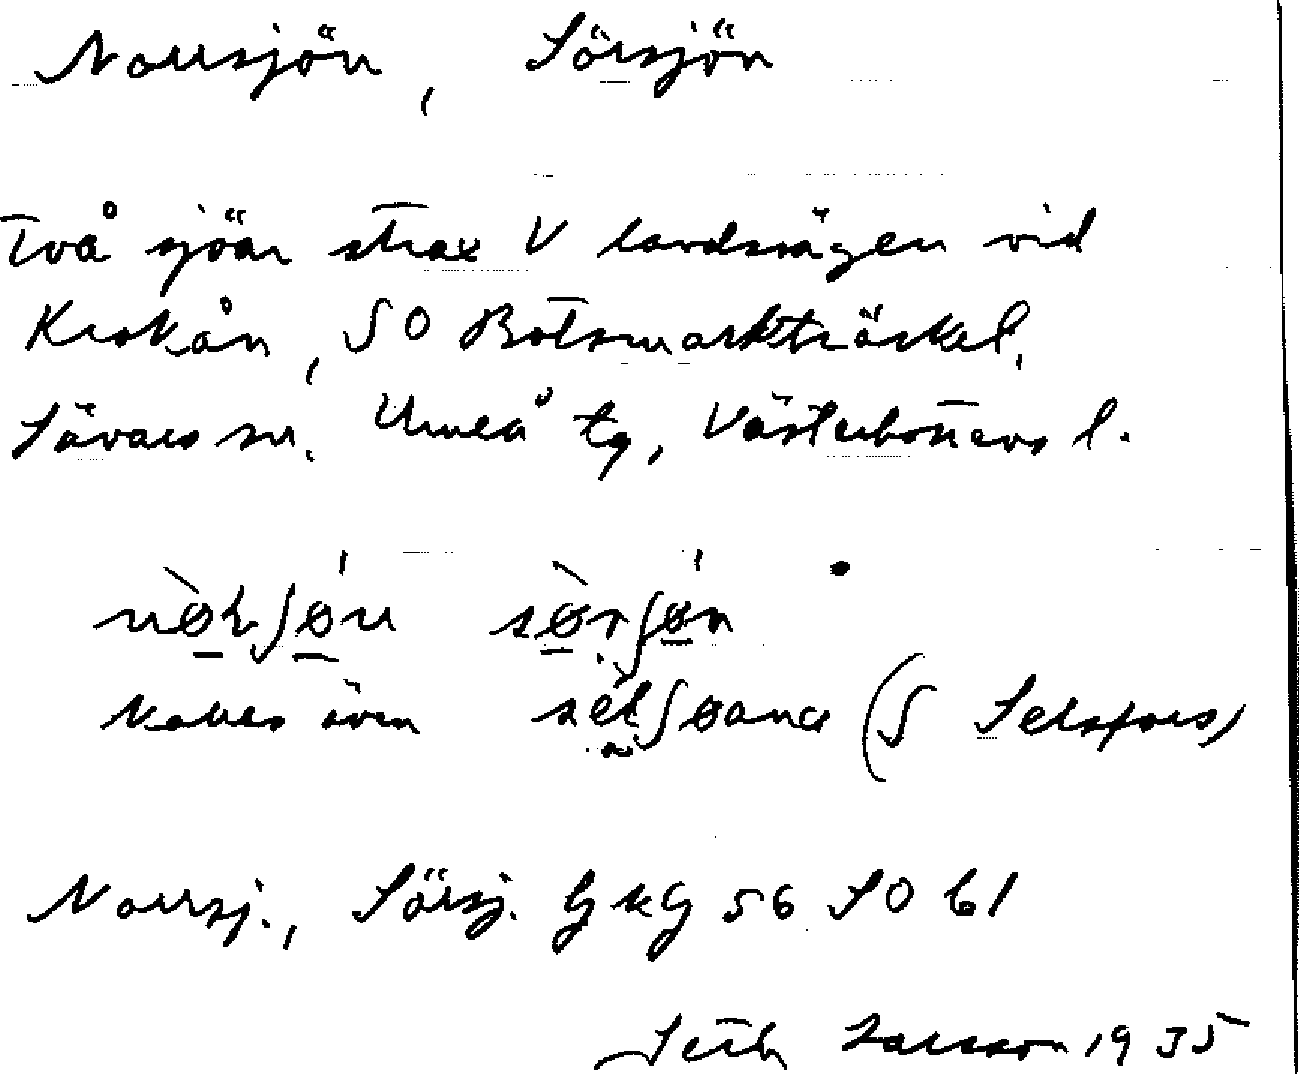 Norrsjön, Sörsjön
Två sjöar strax V landsvägen vid
Krokån, SO Botsmarkträsket,
Sävars sn. Umeå tg, Västerbottens l.
kallas även (S Selsfors)
Norrsj., Sörsj. GKG 56 SO 61
Seth Larsson 1935